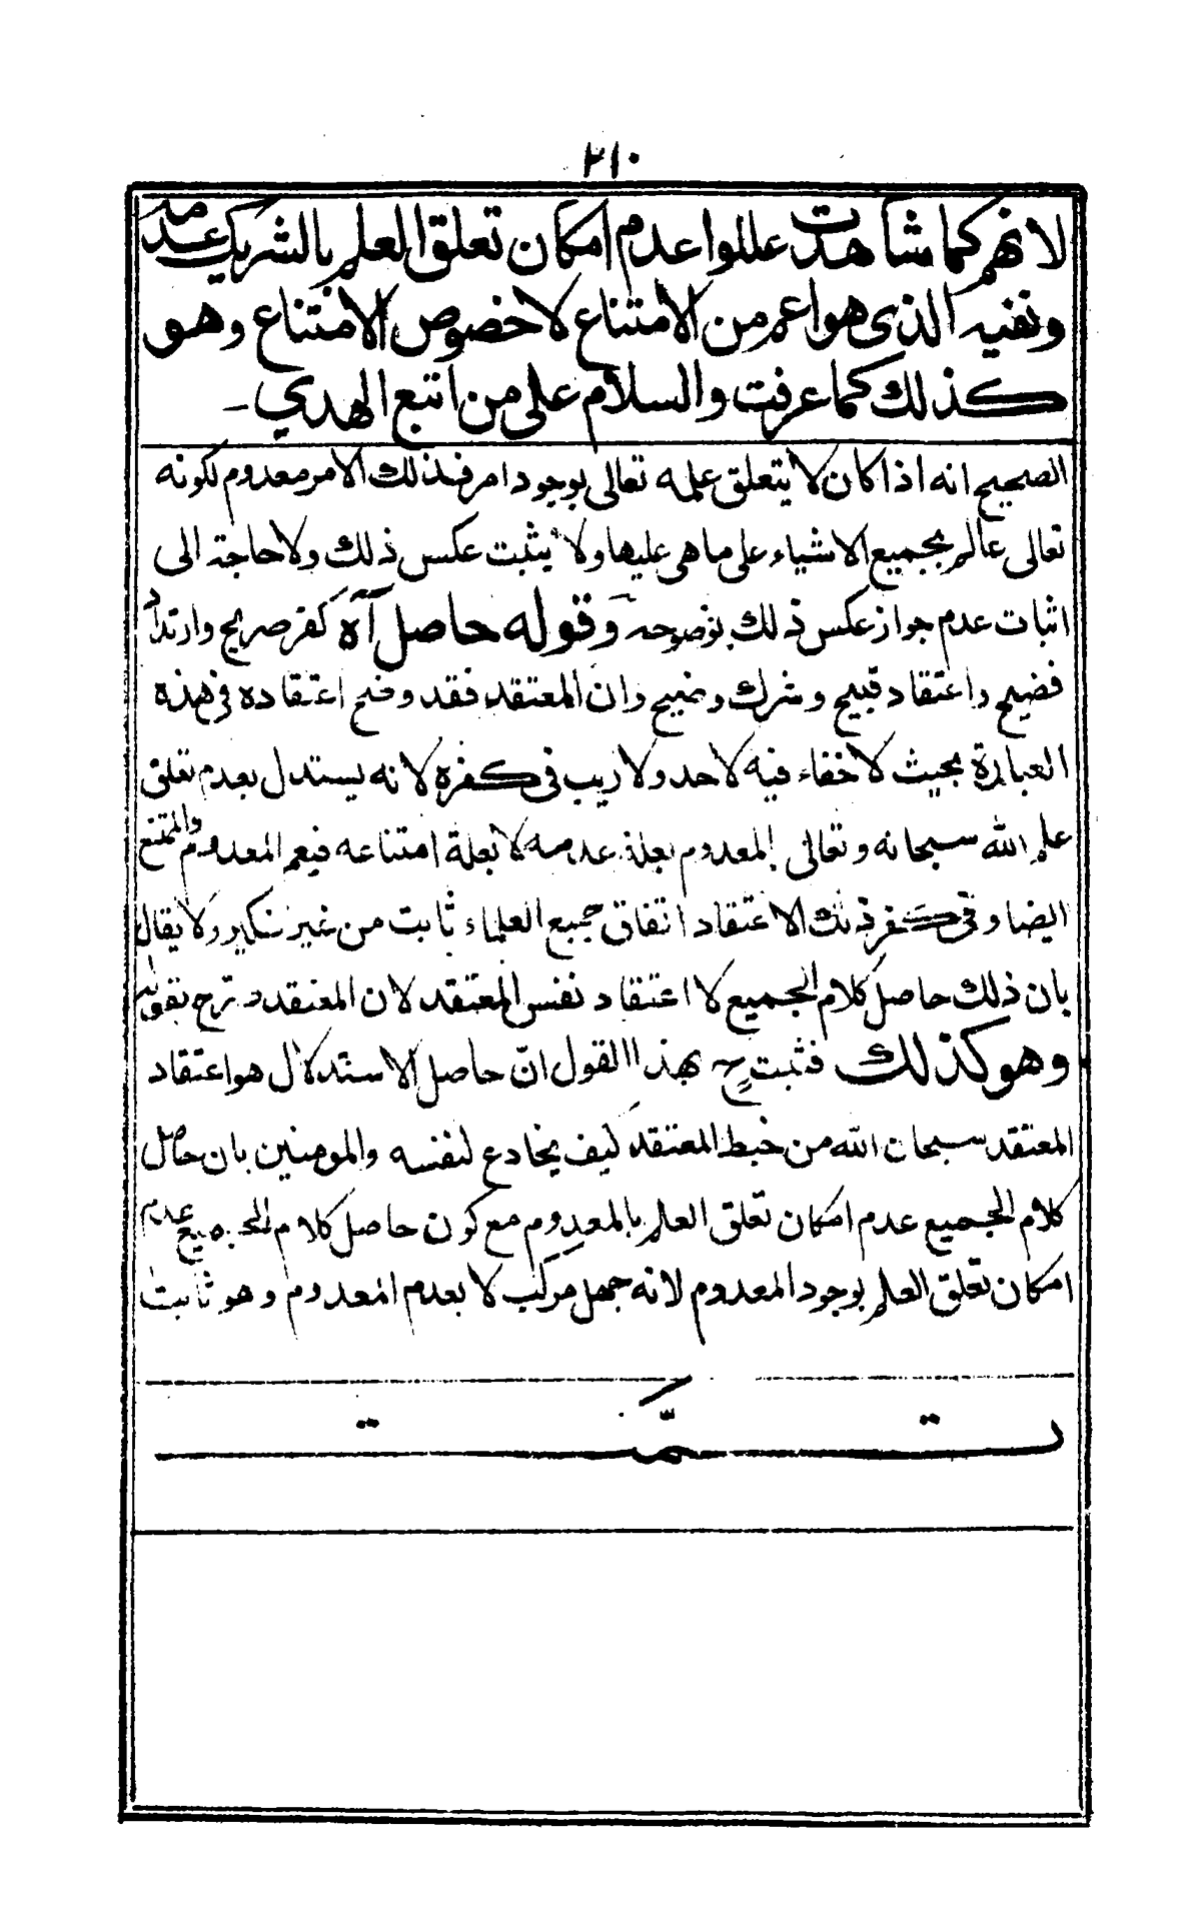 ٢١٠
لانهم كما شاهدت عللوا عدم امكان تعلق العلم بالشريك عدمه
ونفيه الذى هو اعم من الامتناع لا خصوص الامتناع وهو
كذلك كما عرفت والسلام على من اتبع الهدي -
الصحيح انه اذا كان لا يتعلق علمه تعالى بوجود امر فذلك الامر معدوم لكونه
تعالى عالم بجميع الاشياء على ما هى عليها ولا يثبت عكس ذلك ولا حاجة الى
اثبات عدم جواز عكس ذلك بوضوحه وقوله حاصل آه كفر صريح وارتداد
فضيح واعتقاد قبيح وشرك وان المعتقد فقد وضح اعتقاده فى هذه
العبارة بحيث لا خفاء فيه لاحد ولا ريب فى كفره لانه يستدل بعدم تعلق
علم الله سبحانه وتعالى بالمعدوم بعلة عدمه لا بعلة امتناعه فيعم المعدوم والممتنع
ايضا وفى كفر ذلك الاعتقاد اتفاق جميع العلماء ثابت من غير نكير ولا يقال
بان ذلك حاصل كلام الجميع لا اعتقاد نفس المعتقد لان المعتقد بقوله
وهو كذلك فثبت ح بهذا القول انّ حاصل الاستدلال هو اعتقاد
المعتقد سبحان الله من خبط المعتقد كيف يخادع لنفسه والمومنين بان حاصل
كلام الجميع عدم امكان تعلق العلم بالمعدوم مع كون حاصل كلام الجميع عدم
امكان تعلق العلم بوجود المعدوم لانه جهل مركب لا بعدم المعدوم وهو ثابت
تمّت